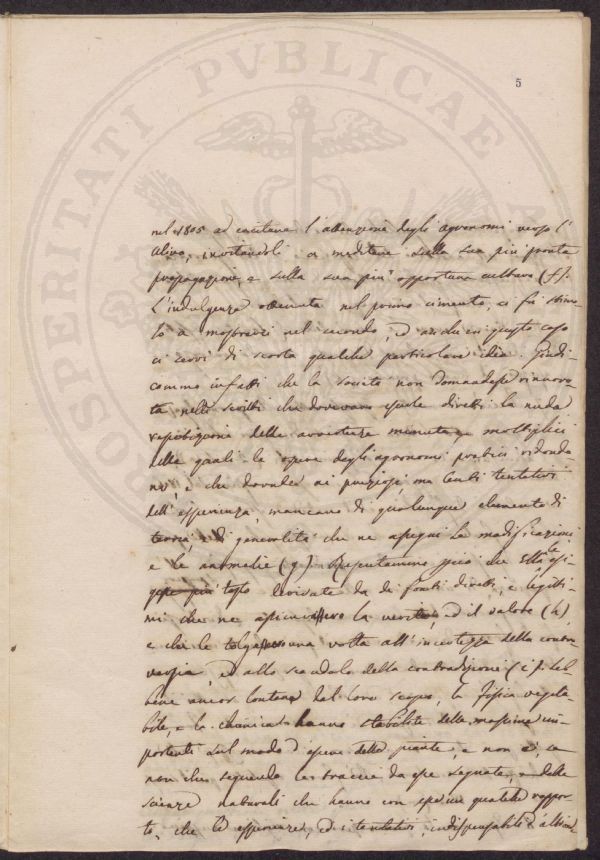 PROSPERITATI PVBLICAE A
5
nel 1805 ad eccitare l'attenzione degli agronomi verso l'
Ulivo, invitandoli a meditare sulla sua più pronta
propagazione, e sulla sua più opportuna cultura (f).
L'indulgenza ottenuta nel primo cimento, ci fu stimo-
lo a mostrarci nel secondo, ed anche in questo caso
ci servì di scorta qualche particolare idea. Giudi-
cammo infatti che la Società non domandasse rinnova-
ta nelli scritti che dovevano esserle diretti la nuda
repetizione delle avvertenze minute e moltiplici
delle quali le opere degli agronomi pratici ridonda-
no, e che dovute ai preziosi, ma tentativi
dell'esperienza, mancano di qualunque elemento di
teoria, e di generalità che ne assegni le modificazioni
e le anomalie (g). perciò che Ella le esi-
gesse più tosto derivate da de' fonti diretti, e legitti-
mi che ne assicurassero la verità, ed il valore (h),
e che le togliessero una volta all'incertezza della contro-
versia, ed allo scandalo della contradizione (i). Seb-
bene ancor lontane dal loro scopo, la fisica vegeta-
bile, e la chimica hanno stabilite delle massime im-
portanti sul modo d'essere delle piante, e non è, se
non che seguendo le traccie da esse segnate, e dalle
scienze naturali che hanno con esse un qualche rappor-
to, che le esperienze, ed i tentativi, indispensabili d'altron